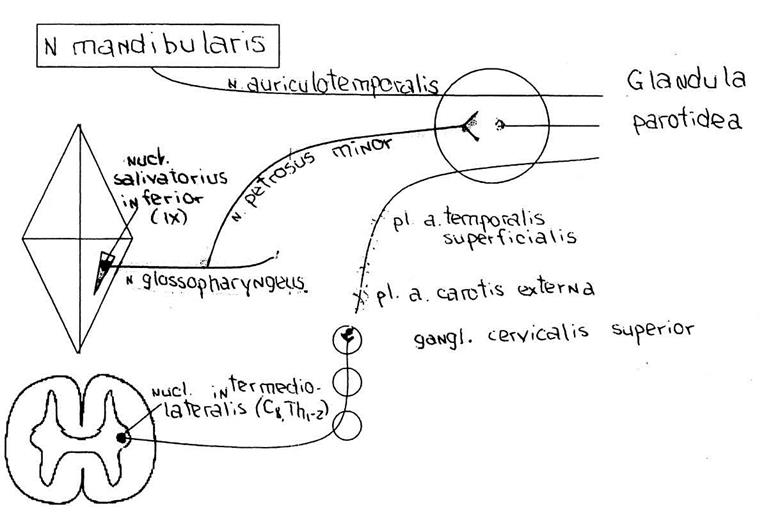 N mandibularis
N. auriculotemporalis
Glandula
parotidea
N. petrosus minor
Nucl.
salivatorius
inferior
(IX)
N. glossopharyngeus
pl. a. temporalis
superficialis
pl. a. carotis externa
gangl. cervicalis superior
Nucl. intermedio-
lateralis (C8, Th1-2)